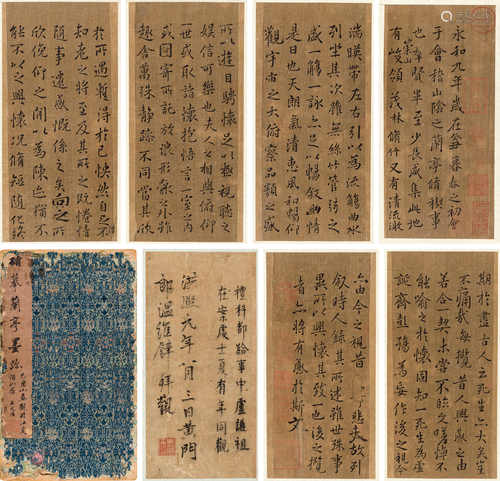 永和九年歲在癸丑暮春之初會
于會稽山陰之蘭亭脩禊事
也羣賢畢至少長咸集此地
有崇山峻領茂林脩竹又有清流激
湍暎帶左右引以為流觴曲水
列坐其次雖無絲竹管弦之
盛一觴一詠亦足以暢敘幽情
是日也天朗氣清惠風和暢仰
觀宇宙之大俯察品類之盛
所以遊目騁懷足以極視聽之
娛信可樂也夫人之相與俯仰
一世或取諸懷抱悟言一室之內
或因寄所託放浪形骸之外雖
趣舍萬殊靜躁不同當其欣
於所遇暫得於己怏然自足不
知老之將至及其所之既惓情
隨事遷感慨係之矣向之所
欣俛仰之閒以為陳迹猶不
能不以之興懷況脩短隨化終
期於盡古人云死生亦大矣豈
不痛哉每攬昔人興感之由
若合一契未嘗不臨文嗟悼不
能喻之於懷固知一死生為虛
誕齊彭殤為妄作後之視今
亦由今之視昔悲夫故列
敘時人錄其所述雖世殊事
異所以興懷其致一也後之攬
者亦將有感於斯文
禮科都給事中盧護祖
處士夏有年同觀
元年八月三日黃門
郎溫維拜觀
蘭亭墨跡